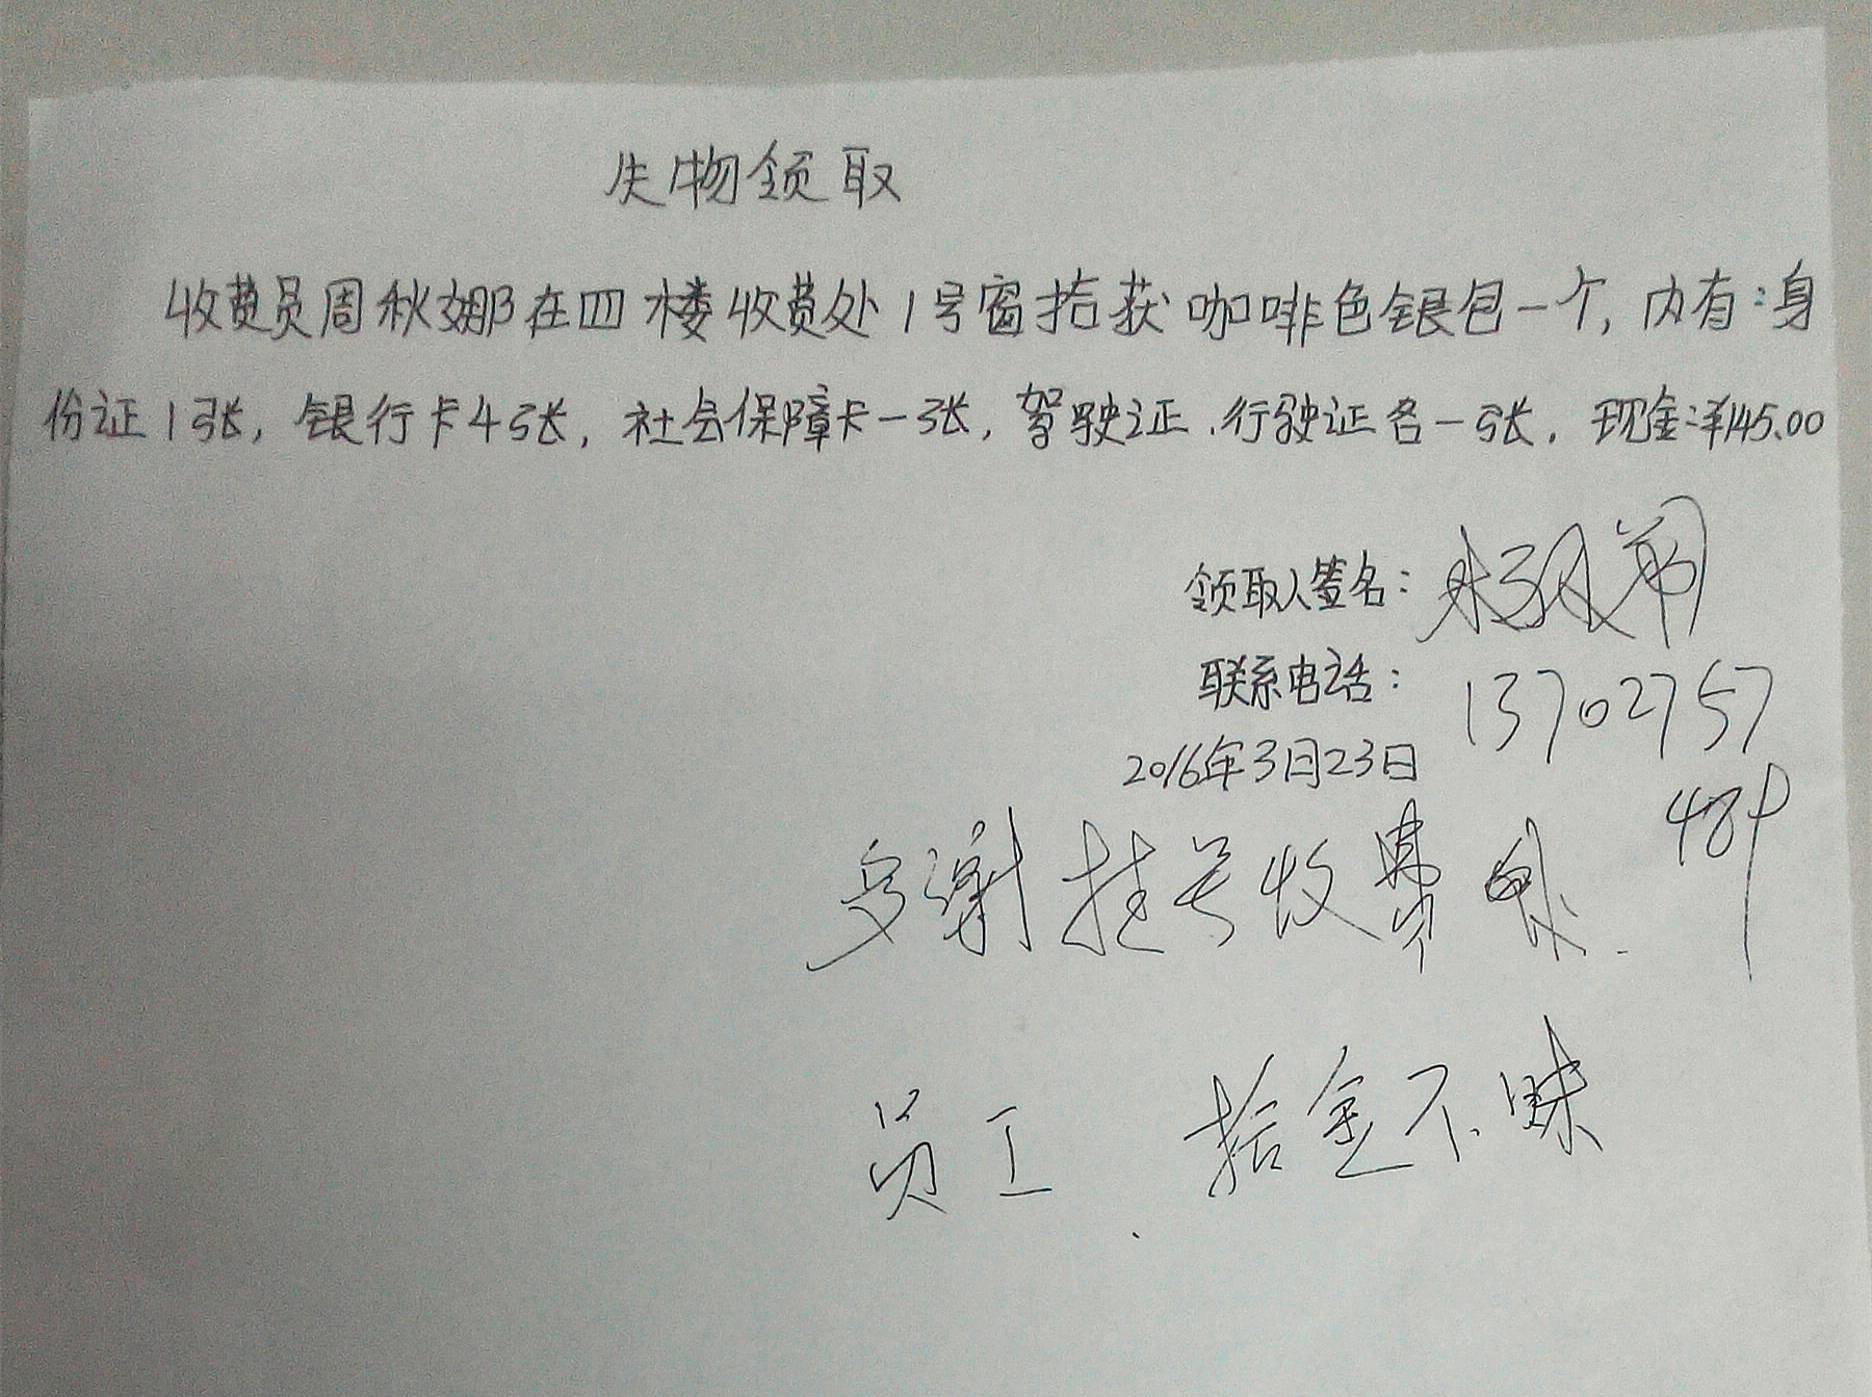 失物领取
收费员周秋娜在四楼收费处1号窗拾获咖啡色银包一个,内有:身
份证1张,银行卡4张,社会保障卡一张,驾驶证、行驶证各一张,现金¥145.00
领取人签名:
联系电话: 13702757
2016年3月23日
484
多谢挂号收费处
员工、拾金不昧